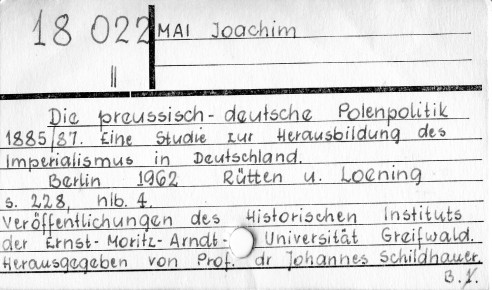 18 022 MAI Joachim
II
Die preussisch-deutsche Polenpolitik
1885/87. Eine Studie zur Herausbildung des
Imperialismus in Deutschland.
Berlin 1962 Rütten u. Loening
s. 228, nlb. 4.
Veröffentlichungen des Historischen Instituts
der Ernst-Moritz-Arndt- Universität Greifwald.
Herausgegeben von Prof. dr Johannes Schildhauer.